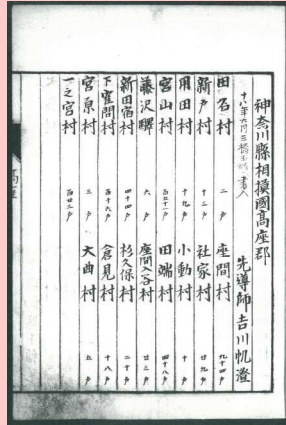 神奈川縣相摸國高座郡
先導師吉川帆澄
田名村 二戸 座間村 九十四戸
新戸村 十三戸 社家村 廿九戸
用田村 十九戸 小動村 十戸
宮山村 百五十一戸 田端村 四十八戸
藤沢驛 六戸 座間入谷村 廿三戸
新田宿村 四十四戸 杉久保村 二十戸
下窪間村 百十六戸 倉見村 十八戸
宮原村 三戸 大曲村 五戸
一之宮村 百廿三戸